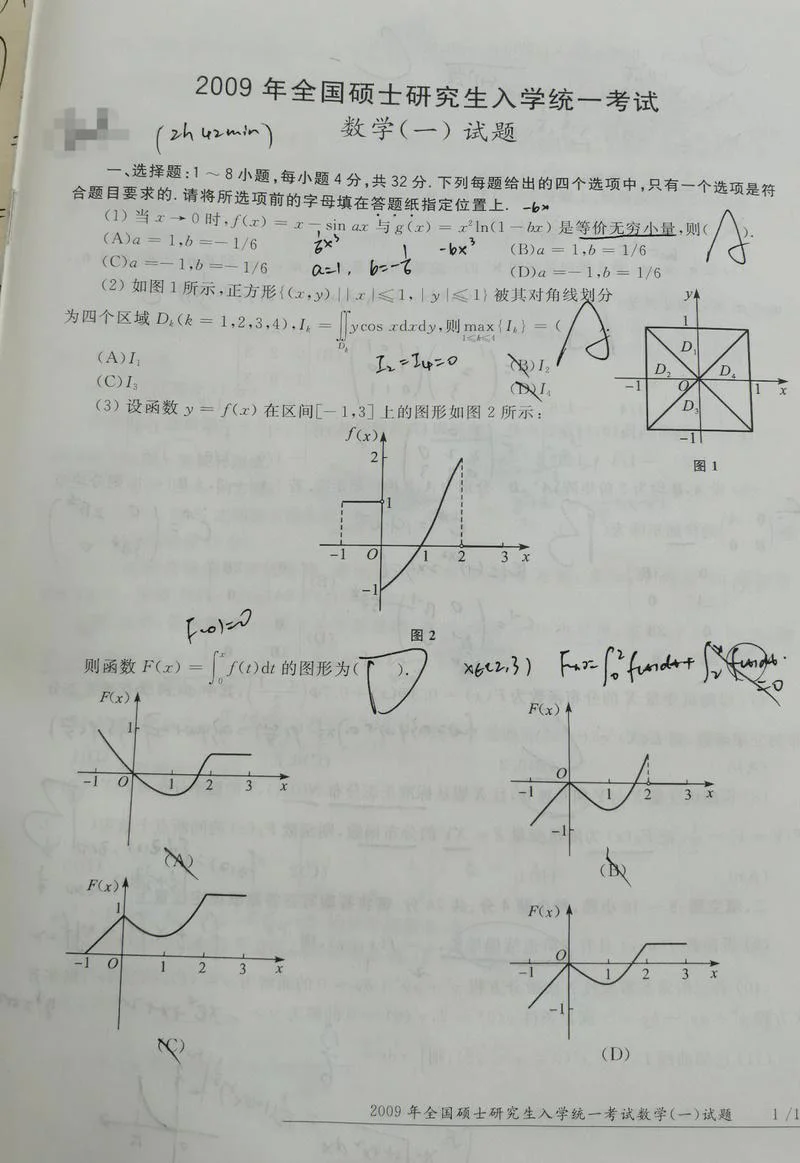 2009 年全国硕士研究生入学统一考试
(2h 42min)
数学(一)试题
一、选择题:1 ～ 8 小题,每小题 4 分,共 32 分. 下列每题给出的四个选项中,只有一个选项是符
合题目要求的. 请将所选项前的字母填在答题纸指定位置上.
-bx
(1) 当 x → 0 时, f(x) = x − sin ax 与 g(x) = x²ln(1 − bx) 是等价无穷小量,则( A ).
(A)a = 1,b = − 1/6
(B)a = 1,b = 1/6
(C)a = − 1,b = − 1/6
(D)a = − 1,b = 1/6
1/6x³
-bx³
a=1, b=-1/6
(2) 如图 1 所示,正方形{(x,y) | | x |⩽ 1, | y |⩽ 1} 被其对角线划分
为四个区域 Dₖ(k = 1,2,3,4), Iₖ = ∬ ycos xdxdy,则 max {Iₖ} = ( A ).
Dₖ
1⩽k⩽4
(A)I₁
(B)I₂
(C)I₃
(D)I₄
I₂=I₄=0
y
1
D₁
D₂
D₄
−1
O
1
x
D₃
−1
图 1
(3) 设函数 y = f(x) 在区间[− 1,3] 上的图形如图 2 所示:
f(x)
2
1
−1
O
1
2
3
x
−1
图 2
F(0)=0
则函数 F(x) = ∫₀ˣ f(t)dt 的图形为( D ).
x∈(2,3)
=0
F(x)
1
−1
O
1
2
3
x
(A)
F(x)
O
−1
1
2
3
x
−1
(B)
F(x)
1
−1
O
1
2
3
x
(C)
F(x)
O
−1
1
2
3
x
−1
(D)
2009 年全国硕士研究生入学统一考试数学(一)试题 1 /1